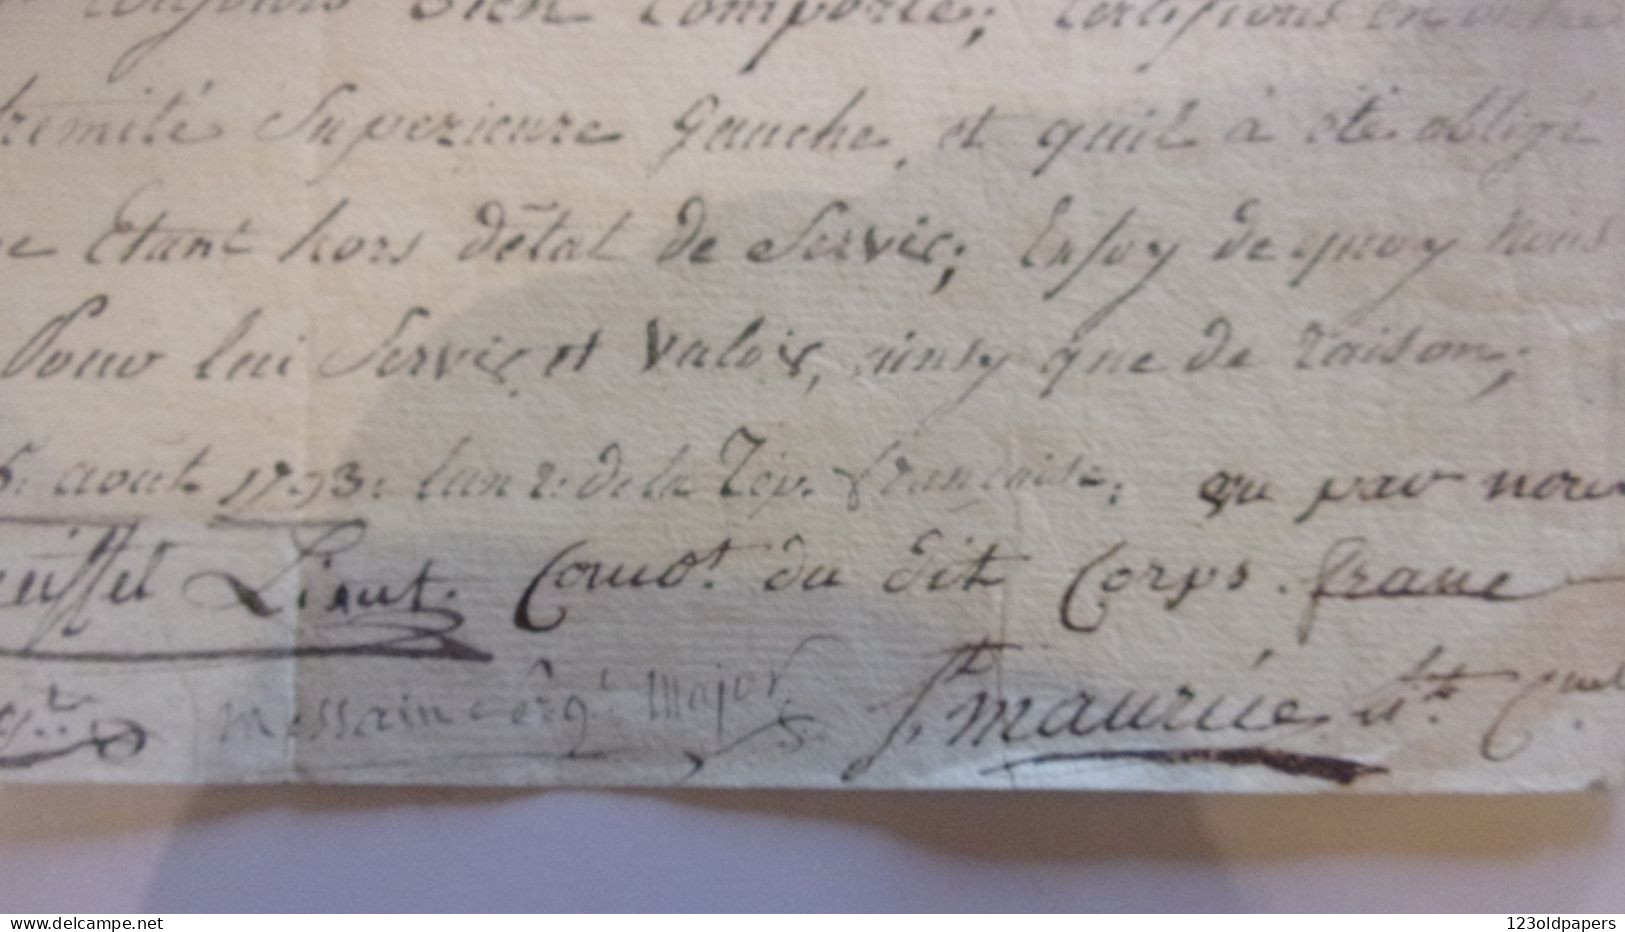 toujours bien Comporté; Certifions en outre
trémité Superieure Gauche, et quil à été obligé
Etant hors d'état de Servir; En foy de quoy Nous
Pour lui Servir et Valoir, ainsy que de raison;
août 1793: lan 2: de la Rép. française; vu par nous
Lieut. Comdt. du dit Corps. franc
messain sergt major St maurice Lt Cnel
www.delcampe.net
123oldpapers